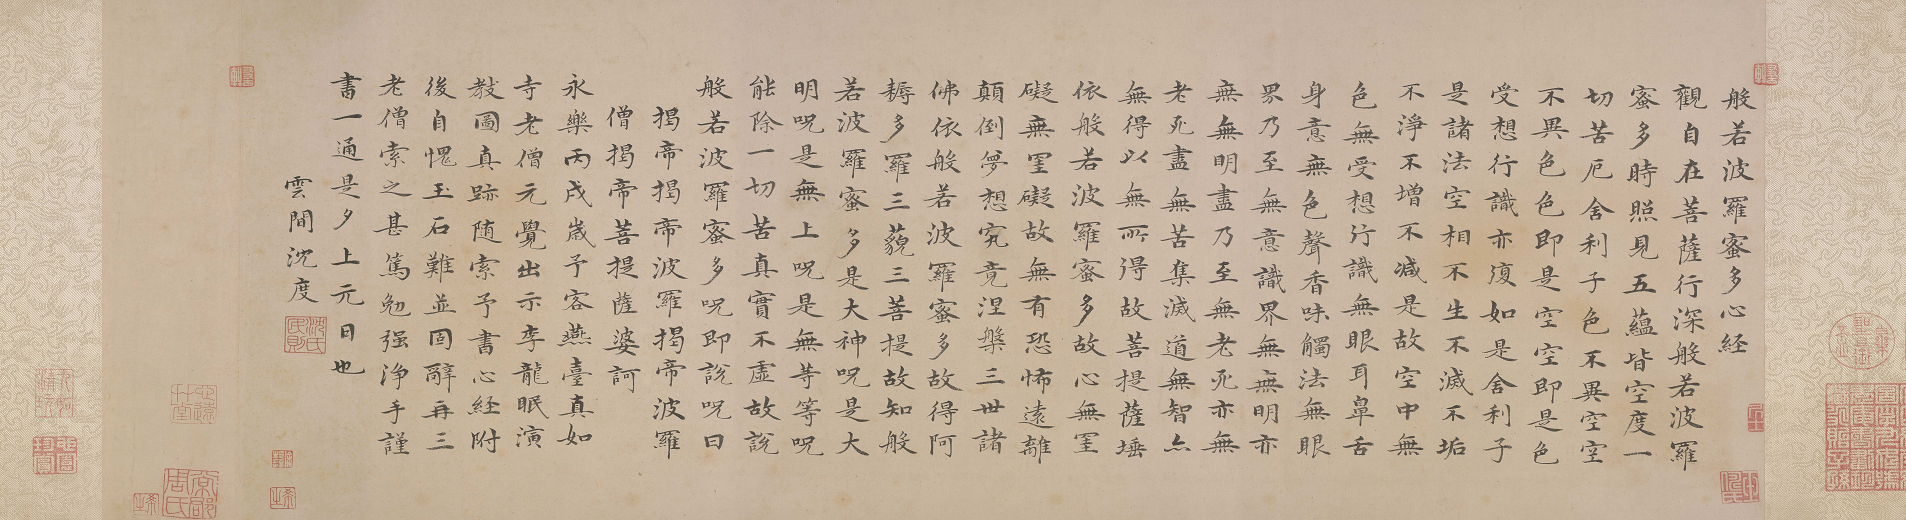 般若波羅蜜多心経
觀自在菩薩行深般若波羅
蜜多時照見五蘊皆空度一
切苦厄舍利子色不異空空
不異色色即是空空即是色
受想行識亦復如是舍利子
是諸法空相不生不滅不垢
不淨不增不減是故空中無
色無受想行識無眼耳鼻舌
身意無色聲香味觸法無眼
界乃至無意識界無無明亦
無無明盡乃至無老死亦無
老死盡無苦集滅道無智亦
無得以無所得故菩提薩埵
依般若波羅蜜多故心無罣
礙無罣礙故無有恐怖遠離
顛倒夢想究竟涅槃三世諸
佛依般若波羅蜜多故得阿
耨多羅三藐三菩提故知般
若波羅蜜多是大神呪是大
明呪是無上呪是無等等呪
能除一切苦真實不虛故說
般若波羅蜜多呪即說呪曰
揭帝揭帝波羅揭帝波羅
僧揭帝菩提薩婆訶
永樂丙戌歲予客燕臺真如
寺老僧元覺出示李龍眠演
教圖真跡随索予書心経附
後自愧玉石難並固辭再三
老僧索之甚篤勉强淨手謹
書一通是夕上元日也
雲間沈度
沈氏民則